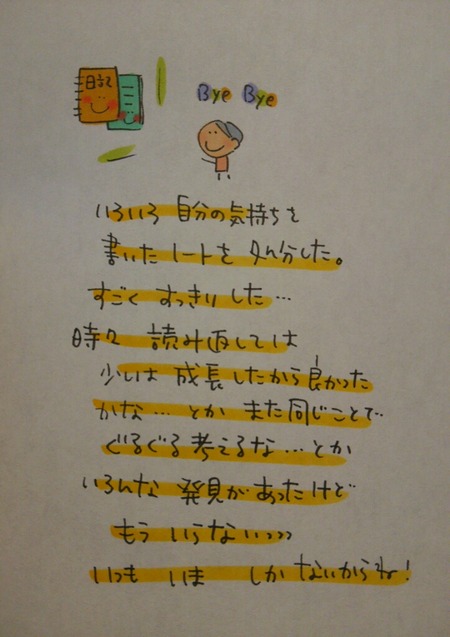 日記
Bye Bye
いろいろ 自分の気持ちを
書いたノートを 処分した。
すごく すっきりした…
時々 読み返しては
少しは 成長したから良かった
かな… とか また同じことで
ぐるぐる考えるな… とか
いろんな 発見があったけど
もう いらない〉〉〉
いつも いま しかないからね!